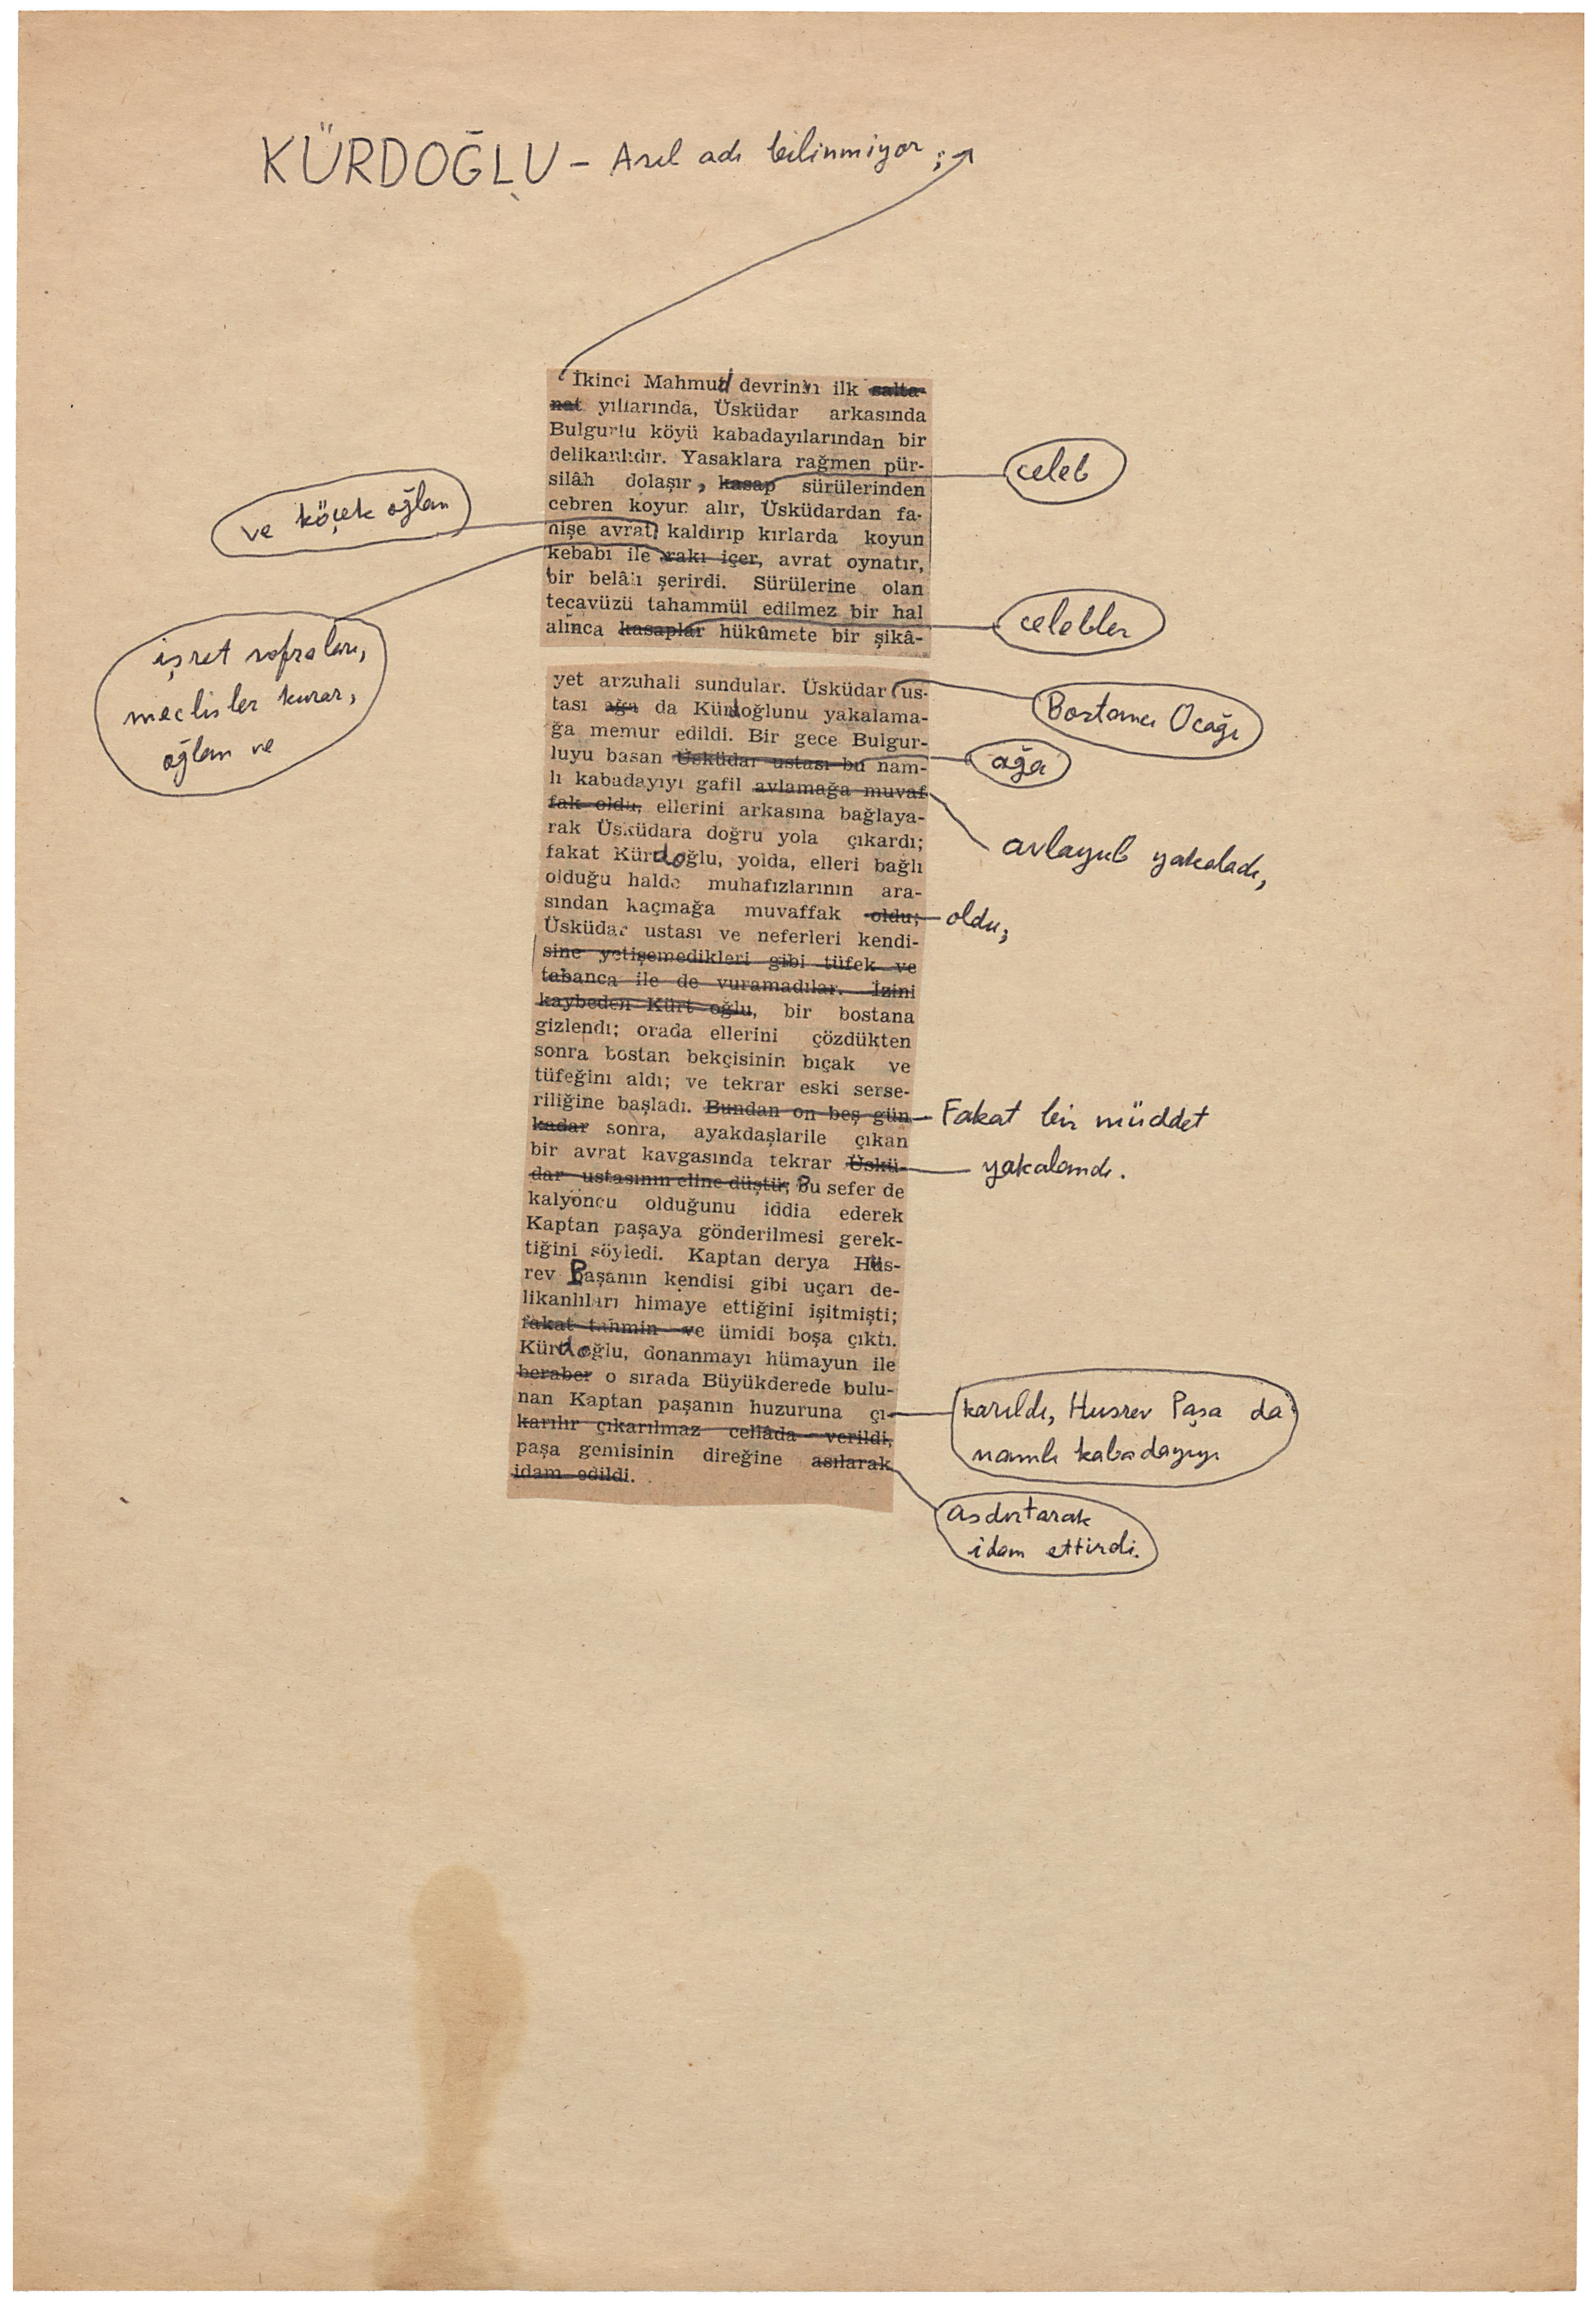 KÜRDOĞLU - Asıl adı bilinmiyor;
İkinci Mahmud devrinin ilk salta-
nat yıllarında, Üsküdar arkasında
Bulgurlu köyü kabadayılarından bir
delikanlıdır. Yasaklara rağmen pür-
silâh dolaşır, kasap sürülerinden
celeb
cebren koyun alır, Üsküdardan fa-
ve köçek oğlan
nişe avrat kaldırıp kırlarda koyun
kebabı ile rakı içer, avrat oynatır,
işret sofraları,
meclisler kurar,
oğlan ve
bir belâlı şerirdi. Sürülerine olan
tecavüzü tahammül edilmez bir hal
alınca kasaplar hükûmete bir şikâ-
celebler
yet arzuhali sundular. Üsküdar us-
Bostancı Ocağı
tası ağa da Kürdoğlunu yakalama-
ğa memur edildi. Bir gece Bulgur-
luyu basan Üsküdar ustası bu nam-
ağa
lı kabadayıyı gafil avlamağa muvaf
fak oldu, ellerini arkasına bağlaya-
avlayub yakaladı,
rak Üsküdara doğru yola çıkardı;
fakat Kürdoğlu, yolda, elleri bağlı
olduğu halde muhafızlarının ara-
sından kaçmağa muvaffak oldu;
oldu;
Üsküdar ustası ve neferleri kendi-
sine yetişemedikleri gibi tüfek ve
tabanca ile de vuramadılar. İzini
kaybeden Kürt oğlu, bir bostana
gizlendi; orada ellerini çözdükten
sonra bostan bekçisinin bıçak ve
tüfeğini aldı; ve tekrar eski serse-
riliğine başladı. Bundan on beş gün
Fakat bir müddet
kadar sonra, ayakdaşlarile çıkan
bir avrat kavgasında tekrar Üskü-
yakalandı.
dar ustasının eline düştü; Bu sefer de
kalyoncu olduğunu iddia ederek
Kaptan paşaya gönderilmesi gerek-
tiğini söyledi. Kaptan derya Hus-
rev Paşanın kendisi gibi uçarı de-
likanlıları himaye ettiğini işitmişti;
fakat tahmin ve ümidi boşa çıktı.
Kürdoğlu, donanmayı hümayun ile
beraber o sırada Büyükderede bulu-
nan Kaptan paşanın huzuruna çı-
karıldı, Husrev Paşa da
namlı kabadayıyı
karılır çıkarılmaz cellâda verildi,
paşa gemisinin direğine asılarak
idam edildi.
asdırtarak
idam ettirdi.